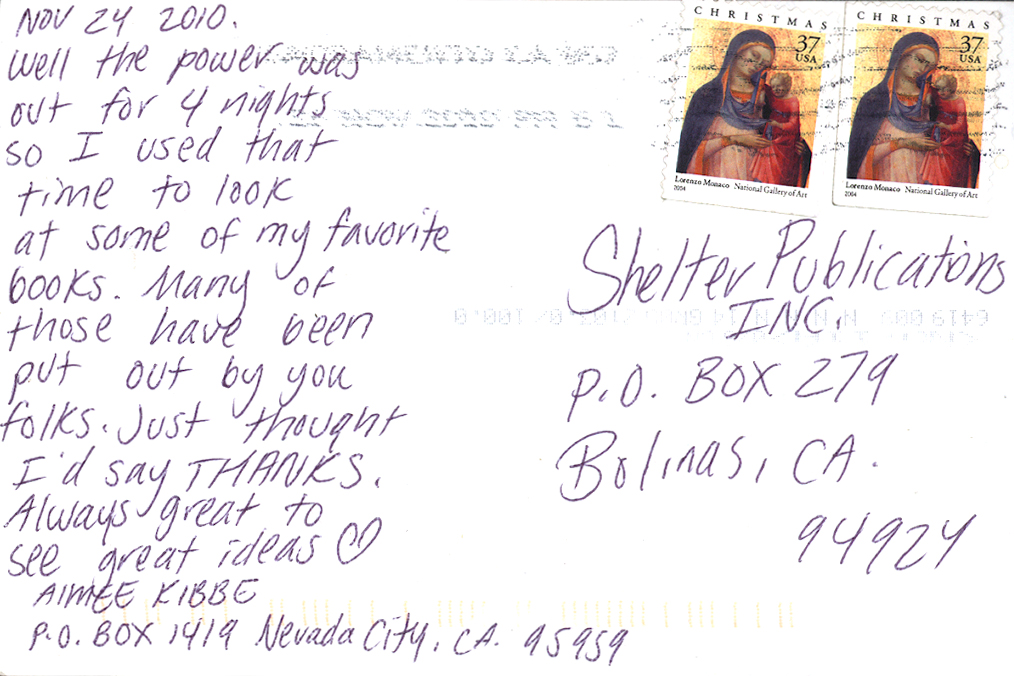 NOV 24 2010.
Well the power was
out for 4 nights
so I used that
time to look
at some of my favorite
books. Many of
those have been
put out by you
folks. Just thought
I'd say THANKS.
Always great to
see great ideas ♡
AIMEE KIBBE
P.O. BOX 1419 Nevada City, CA. 95959
CHRISTMAS
37
USA
Lorenzo Monaco National Gallery of Art
2004
CHRISTMAS
37
USA
Lorenzo Monaco National Gallery of Art
2004
Shelter Publications
INC.
P.O. BOX 279
Bolinas, CA.
94924